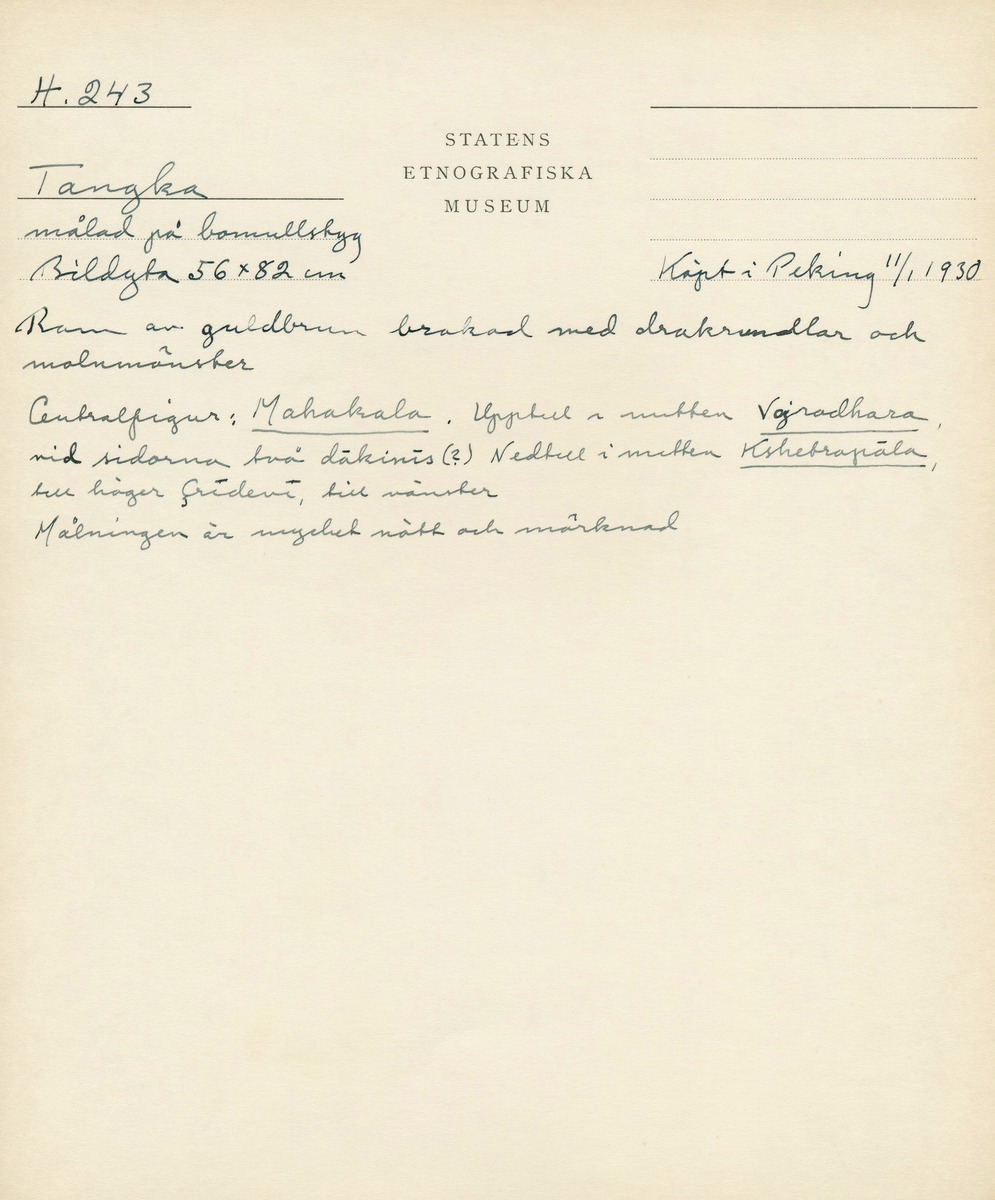 H. 243
STATENS
ETNOGRAFISKA
MUSEUM
Tangka
målad på bomullstyg
Bildyta 56 x 82 cm
Köpt i Peking 11/1 1930
Ram av guldbrun brokad med drakrundlar och
molnmönster
Centralfigur: Mahakala. Upptill i mitten Vajradhara,
vid sidorna två dākinīs (?) Nedtill i mitten Kshetrapāla,
till höger Çrīdevī, till vänster
Målningen är mycket nött och mörknad